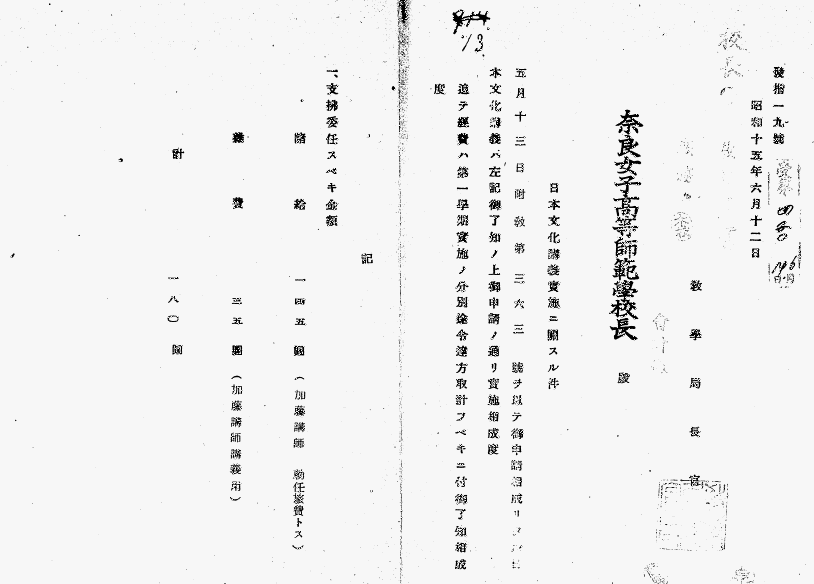 發指一九號
昭和十五年六月十二日
教學局長官
奈良女子高等師範學校長 殿
日本文化講義實施ニ關スル件
五月十三日附教第三六三號ヲ以テ御申請相成リ
本文化講義ハ左記御了知ノ上御申請ノ通リ實施相成度
追テ經費ハ第一學期實施ノ分別途令達方取計フベキニ付御了知相成
度
記
一、支拂委任スベキ金額
諸給 一四五圓(加藤講師 勅任旅費トス)
費 三五圓(加藤講師講義用)
計 一八〇圓